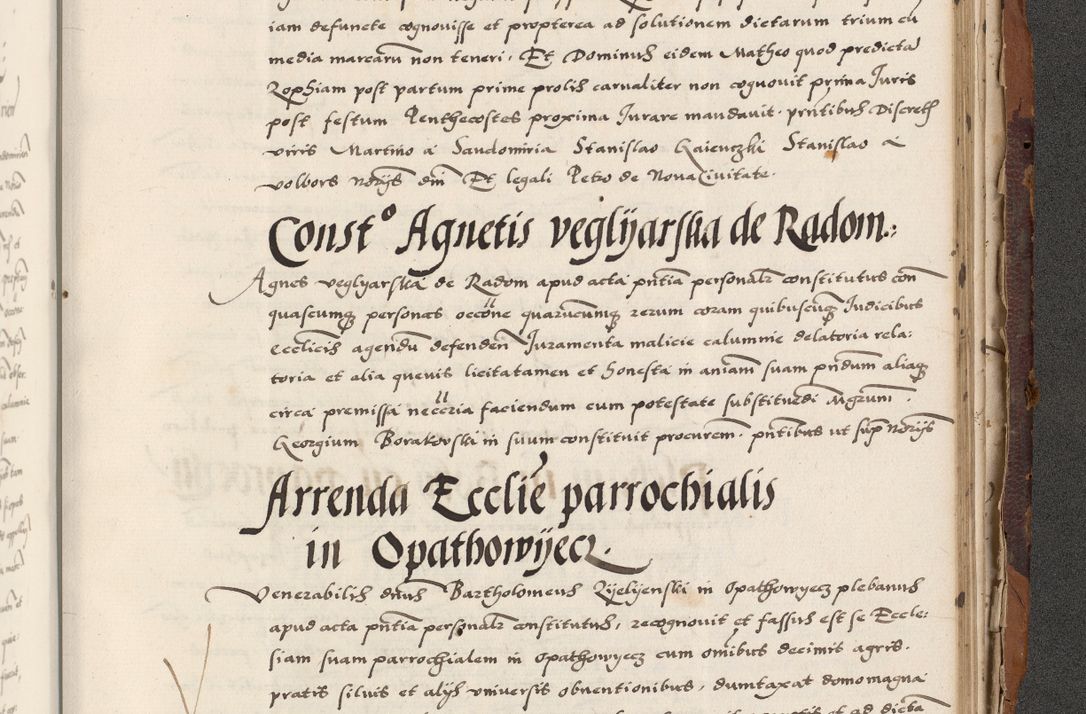 iam defuncte cognouisse et propterea ad solutionem dictarum trium cu
media marcarum non teneri. Et Dominus eidem Matheo quod predictā
Zophiam post partum prime prolis carnaliter non cognouit prima Juris
post festum Penthecostes proxima Jurare mandauit. pntibus Discretis
viris Martino a Sandomiria Stanislao Kaienczki Stanislao a
volbors notrijs dni Et legali Petro de Noua Ciuitate.
Const° Agnetis veglijarska de Radom.
Agnes veglyarska de Radom apud acta pntia personalr constitutus con
quascumq personas occõne quarucumq rerum coram quibuscuq Judicibus
ecclicis agendu defenden Juramenta malicie calumnie delatoria rela:
toria et alia queuis licita tamen et honesta in aniam suam pndum aliaq
circa premissa neccria faciendum cum potestate substituedi Mgrum
Georgium Borakovski in suum constituit procurem. pntibus ut sup notrijs
Arrenda Ecclie parrochialis
in Opathowijecz.
Venerabilis dnus Bartholomeus Zyelyenski in Opathowyecz plebanus
apud acta pntia personalr constitutus, recognouit et fassus est se Eccle:
siam suam parrochialem in Opathowyecz cum omibus decimis agris.
pratis siluis et alijs vniuersis obuentionibus, dumtaxat domo magna
et ad dicta